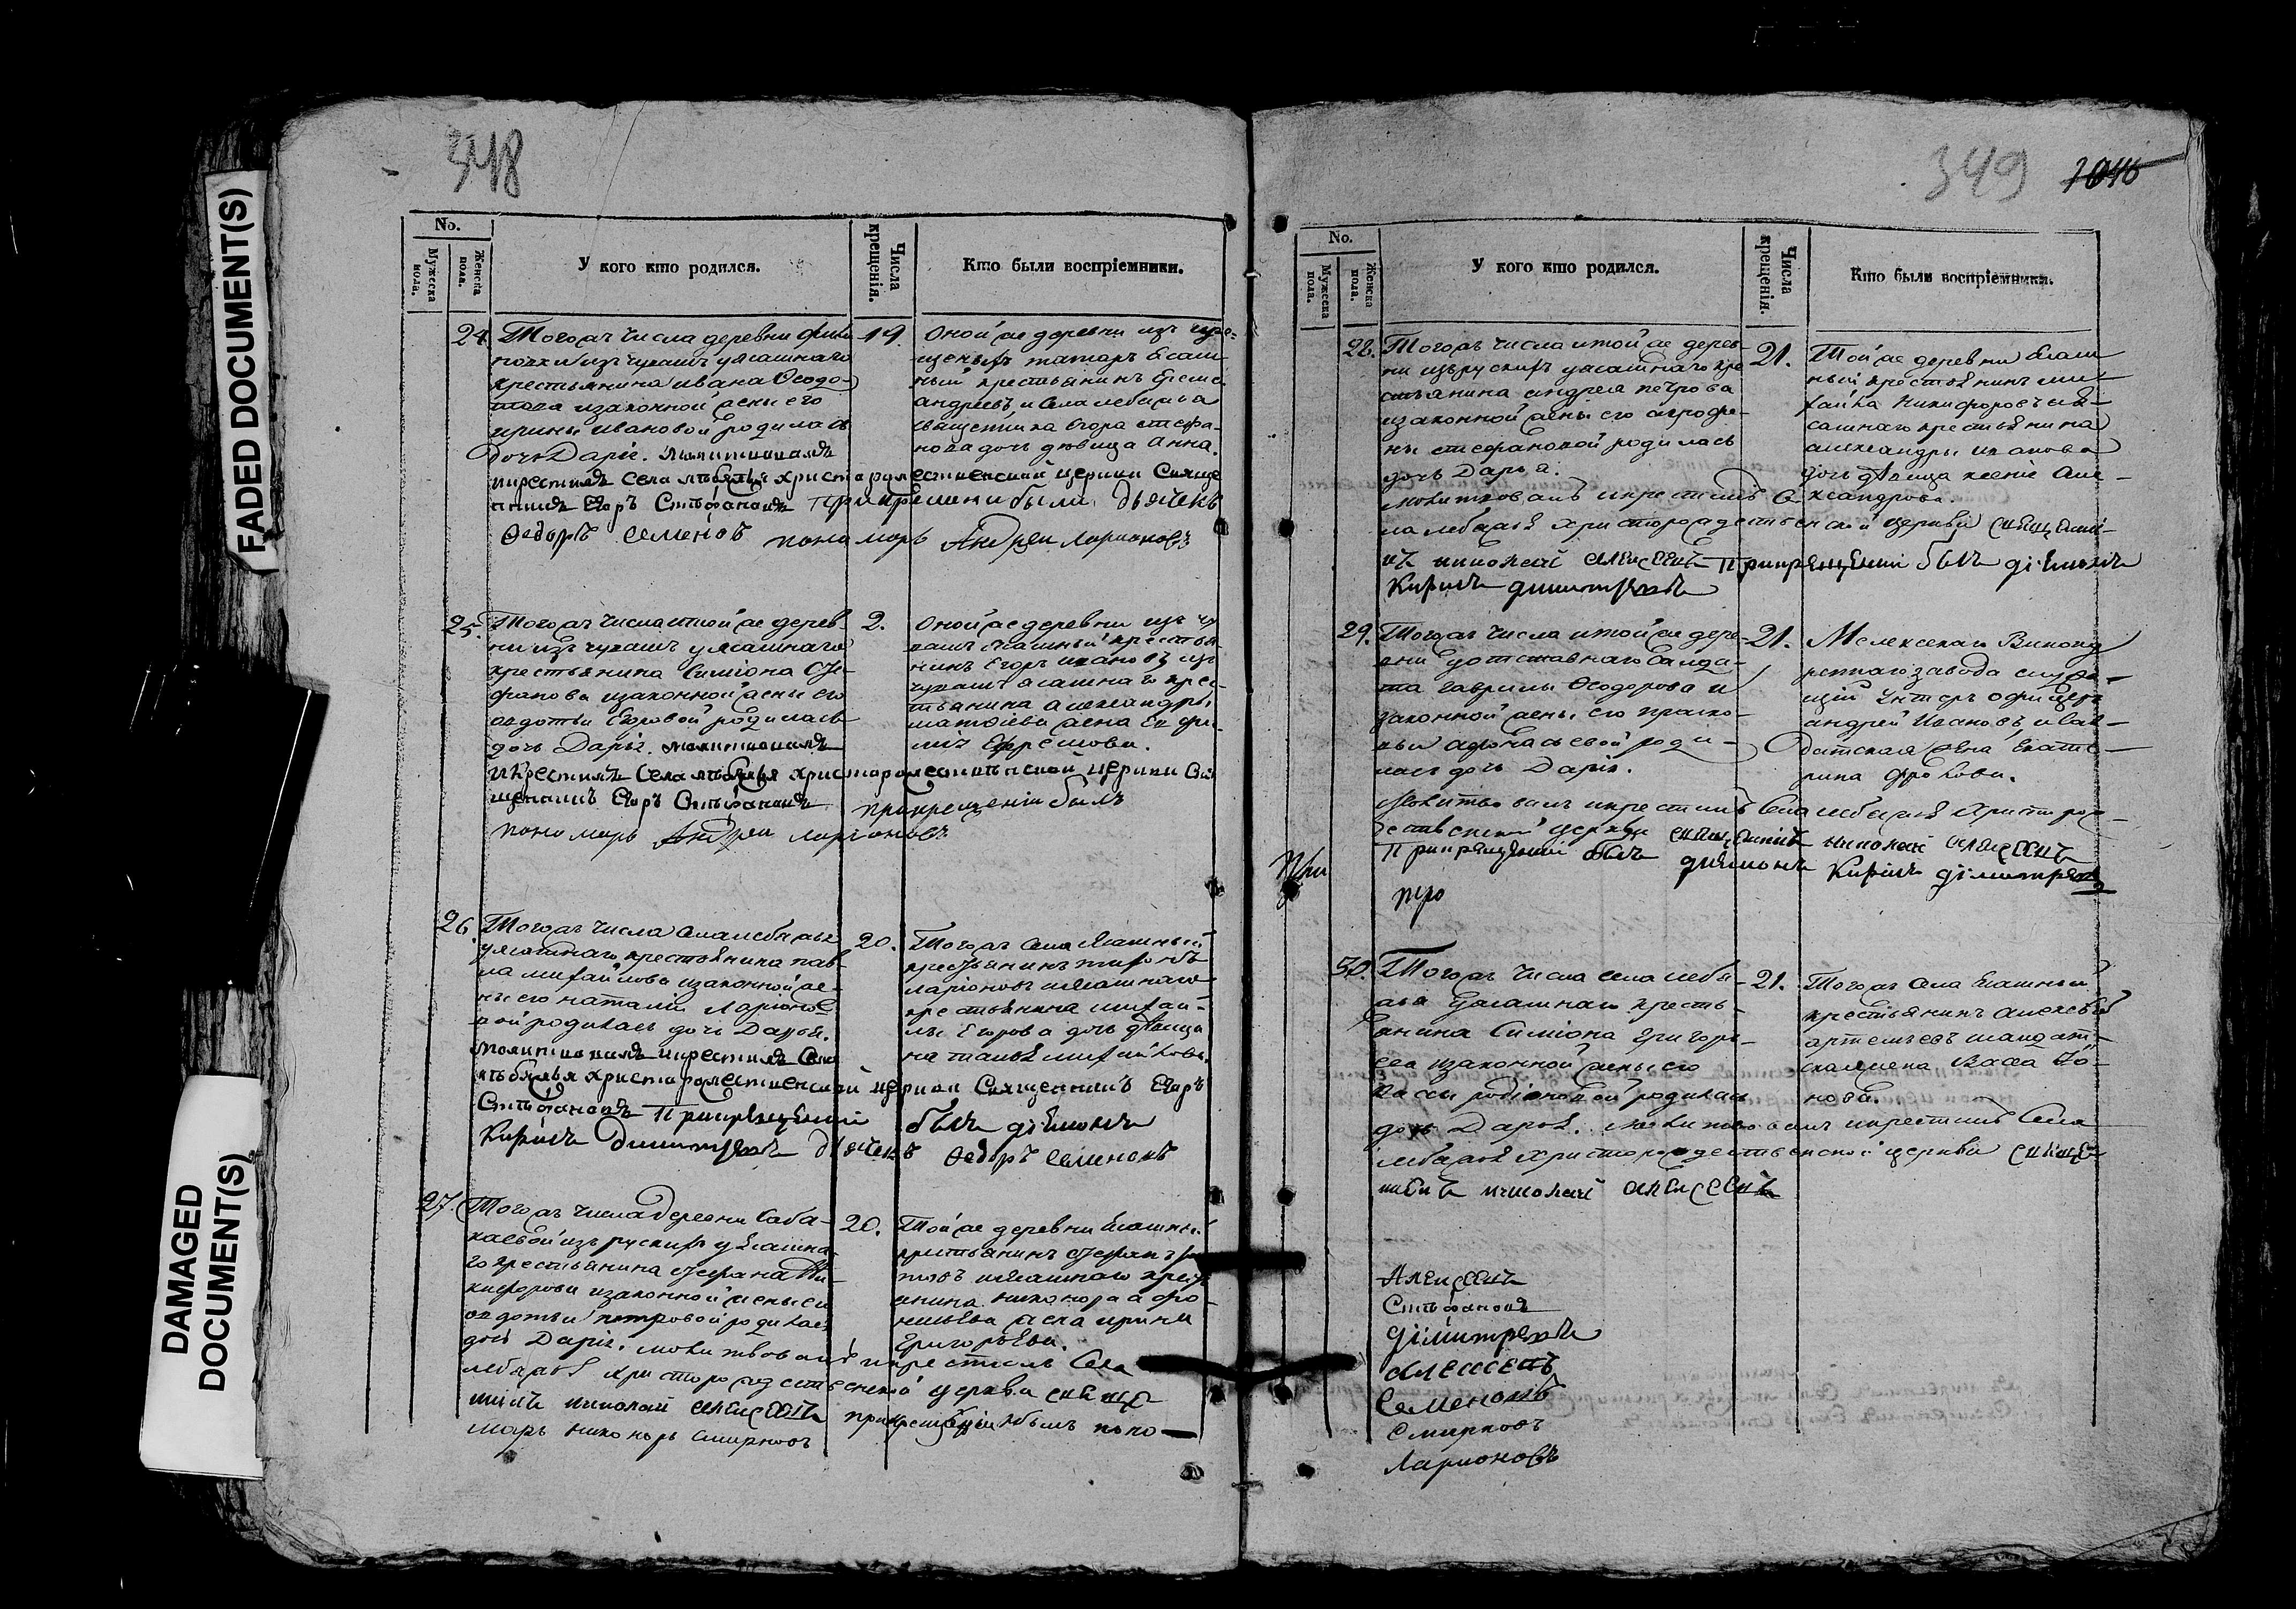 FADED DOCUMENT(S)
DAMAGED
DOCUMENT(S)
348
No.
Мужеска пола.
Женска пола.
У кого кто родился.
Числа крещенія.
Кто были воспріемники.
24. Тогожъ числа деревни
изъ чувашъ уясашнаго
крестьянина ивана Ѳеодо-
това изаконной жены его
ирины ивановой родилась
дочь Дарія. молитвовалъ
икрестилъ села лѣбяжья христорожественской церкви Свяще
нникъ Егоръ Стефановъ при крещени были дьячекъ
Ѳедоръ Семеновъ пономарь Андреи Ларионовъ
19.
Оной же деревни изъ кре-
щеныхъ татаръ Ясаш
ный крестьянинъ
андреевъ и Села лебяжья
священника Егора стефа-
нова дочь девица Анна.
25. Тогожъ числа итой же дерев-
ни изъ чувашъ уясашнаго
крестьянина Симіона Сте-
фанова изаконной жены его
авдотьи Егоровой родилась
дочь Дарія. молитвовалъ
икрестилъ Села лѣбяжья христорожественской церкви Свя
щенникъ Егоръ Стефановъ прикрещеніи былъ
пономарь Андреи Ларионовъ
2.
Оной же деревни изъ чу
вашъ ясашный крестья
нинъ Егоръ ивановъ изъ
чувашъ ясашнаго крес-
тьянина александры
матвѣева жена Евфи-
мія Ефремова.
26. Тогожъ числа Села лебяжья
уясашнаго крестьянина пав-
ла михайлова изаконной же-
ны его наталіи Ларіоно-
вой родилась дочь Дарья.
молитвовалъ икрестилъ Села
лѣбяжья христорожественской церкви Священникъ Егоръ
Стефановъ Прикрещении былъ діяконъ
Кирилъ Димитревъ дьячекъ Ѳедоръ Семеновъ
20.
Тогожъ Села Ясашный
крестьянинъ тихонъ
Ларіоновъ иясашнаго
крестьянина михаи-
лы Егорова дочь девица
наталья михайлова.
27. Тогожъ числа деревни Саба-
каевой изъ рускихъ уясашна-
го крестьянина стефана Ни-
кифорова изаконной жены его
авдотьи петровой родилась
дочь Дарія. молитвовалъ икрестилъ Села
лебяжья христорождественской церкви свяще
никъ николай алексеевъ прикрещеніи былъ поно-
марь никоноръ Смирновъ
20.
Той же деревни Ясашный
крестьянинъ стефанъ
иясашнаго крест
янина никонора афо-
насьева жена ирина
григорьева.
349 1046
No.
Мужеска пола.
Женска пола.
У кого кто родился.
Числа крещенія.
Кто были воспріемники.
28. Тогожъ числа итой же дерев-
ни изъ рускихъ уясашнаго кре
стьянина андрея петрова
изаконной жены его агрофе-
ны стефановой родилась
дочь Дарья.
молитвовалъ икрестилъ Се
ла лебяжья христорождественской церкви священни-
къ николай алексеевъ Прикрещении былъ діяконъ
Кирилъ димитревъ
21.
Той же деревни Ясаш
ный крестьянинъ ми-
хайла Никифоровъ ия-
сашнаго крестьянина
александры иванова
дочь девица ксенія Але-
ксандрова.
29. Тогожъ числа итой же дере-
вни уотставнаго Салда-
та гаврилы Ѳеодорова и
законной жены его праско-
вьи афонасьевой роди-
лась дочь Дарія.
молитвовалъ икрестилъ Села лебяжья христорож-
дественской церкви священникъ николай алексеевъ
Прикрещении былъ діяконъ Кирилъ дімитревъ
При
тро
21.
Мелекескаго Виноку
реннаго завода служа-
щій Унтеръ офицеръ
андрей Ивановъ, и Сал-
датская жена Екате-
рина фролова.
30. Тогожъ числа села лебя-
жья уясашнаго кресть-
янина Симіона григорь-
ева изаконной жены его
Васы родіоновой родилась
дочь Дарья. молитвовалъ икрестилъ Села
лебяжья христорождественской церкви свяще-
никъ николай алексеевъ
21.
Тогожъ Села Ясашный
крестьянинъ алексѣй
артемьевъ
жена Васа
нова.
Алексеевъ
Стефановъ
дімитревъ
Алексеевъ
Семеновъ
Смирновъ
Ларионовъ